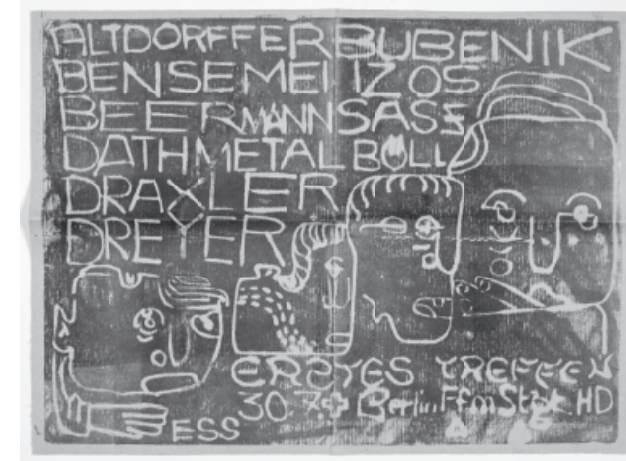 ALTDORFFER BUBENIK
BENSEMEI IZOS
BEERMANN SASS
DATHMETAL BÖLL
DRAXLER
DREYER
ERSTES TREFFEN
30. Berlin Ffm Stgt HD
ESS